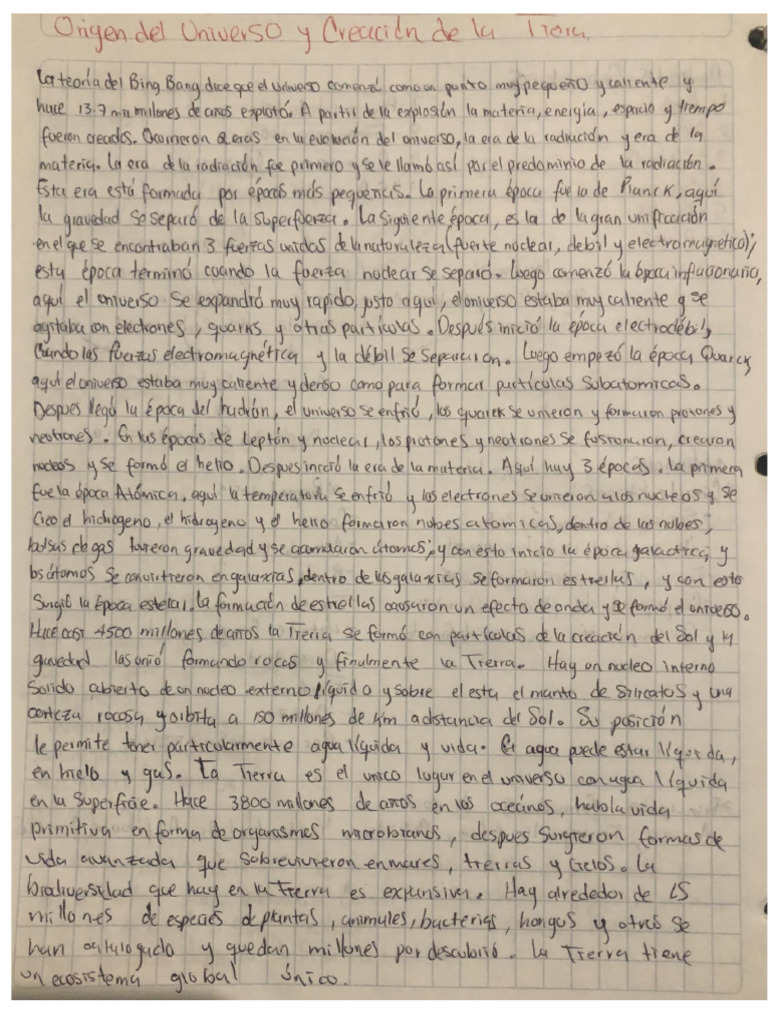 Origen del Universo y Creación de la Tierra
La teoría del Bing Bang dice que el universo comenzó como un punto muy pequeño y caliente y
hace 13.7 mil millones de años explotó. A partir de la explosión la materia, energia, espacio y tiempo
fueron creados. Ocurrieron 2 eras en la evolución del universo, la era de la radiación y era de la
materia. La era de la radiación fue primero y se le llamó así por el predominio de la radiación.
Esta era está formada por épocas más pequeñas. La primera época fue la de Planck, aquí
la gravedad se separó de la superfuerza. La siguiente época, es la de la gran unificación
en el que se encontraban 3 fuerzas unidas de la naturaleza (fuerte nuclear, debil y electromagnetica);
esta época terminó cuando la fuerza nuclear se separó. Luego comenzó la época inflacionaria,
aquí el universo se expandió muy rapido, justo aquí, el universo estaba muy caliente y se
agitaba con electrones, quarks y otras partículas. Después inició la época electrodébil,
cuando las fuerzas electromagnética y la débil se separaron. Luego empezó la época Quarck
aquí el universo estaba muy caliente y denso como para formar partículas subatomicas.
Despues llegó la época del hadrón, el universo se enfrió, los quarck se unieron y formaron protones y
neutrones. En las épocas de Leptón y nuclear, los protones y neutrones se fusionaron, crearon
nucleos y se formó el helio. Despues inició la era de la materia. Aquí hay 3 épocas. La primera
fue la época Atómica, aquí la temperatura se enfrió y los electrones se unieron a los nucleos y se
creo el hidrogeno, el hidrogeno y el helio formaron nubes atomicas, dentro de las nubes,
bolsas de gas tuvieron gravedad y se acumularon átomos; y con esto inicio la época galactica; y
los átomos se convirtieron en galaxias, dentro de las galaxias se formaron estrellas, y con esto
surgió la época estelar. La formación de estrellas causaron un efecto de onda y se formó el universo.
Hace casi 4500 millones de años la Tierra se formó con partículas de la creación del Sol y la
gravedad las unió formando rocas y finalmente la Tierra. Hay un nucleo interno
solido cubierto de un nucleo externo líquido y sobre el esta el manto de silicatos y una
corteza rocosa y orbita a 150 millones de km a distancia del Sol. Su posición
le permite tener particularmente agua líquida y vida. El agua puede estar líquida,
en hielo y gas. La Tierra es el unico lugar en el universo con agua líquida
en la superficie. Hace 3800 millones de años en los oceános, había vida
primitiva en forma de organismos microbianos, despues surgieron formas de
vida avanzada que sobrevivieron en mares, tierras y cielos. La
biodiversidad que hay en la Tierra es expansiva. Hay alrededor de 1.5
millones de especies de plantas, animales, bacterias, hongos y otros se
han catalogado y quedan millones por descubrir. La Tierra tiene
un ecosistema global único.